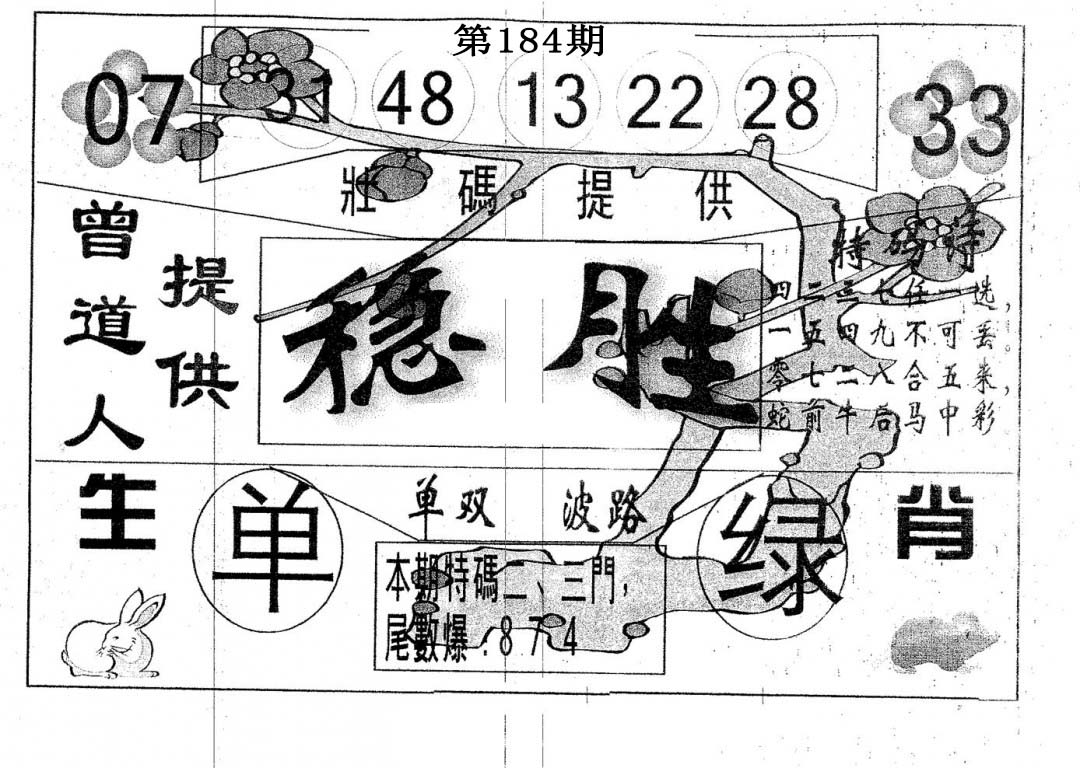 第184期
07 31 48 13 22 28 33
壯碼提供
曾道人
提供
稳胜
特码诗
四二三七任一选，
一五四九不可丢。
零七二八合五来，
蛇前牛后马中彩
生肖
单双 波路
单
绿
本期特碼二、三門，
尾數爆：874